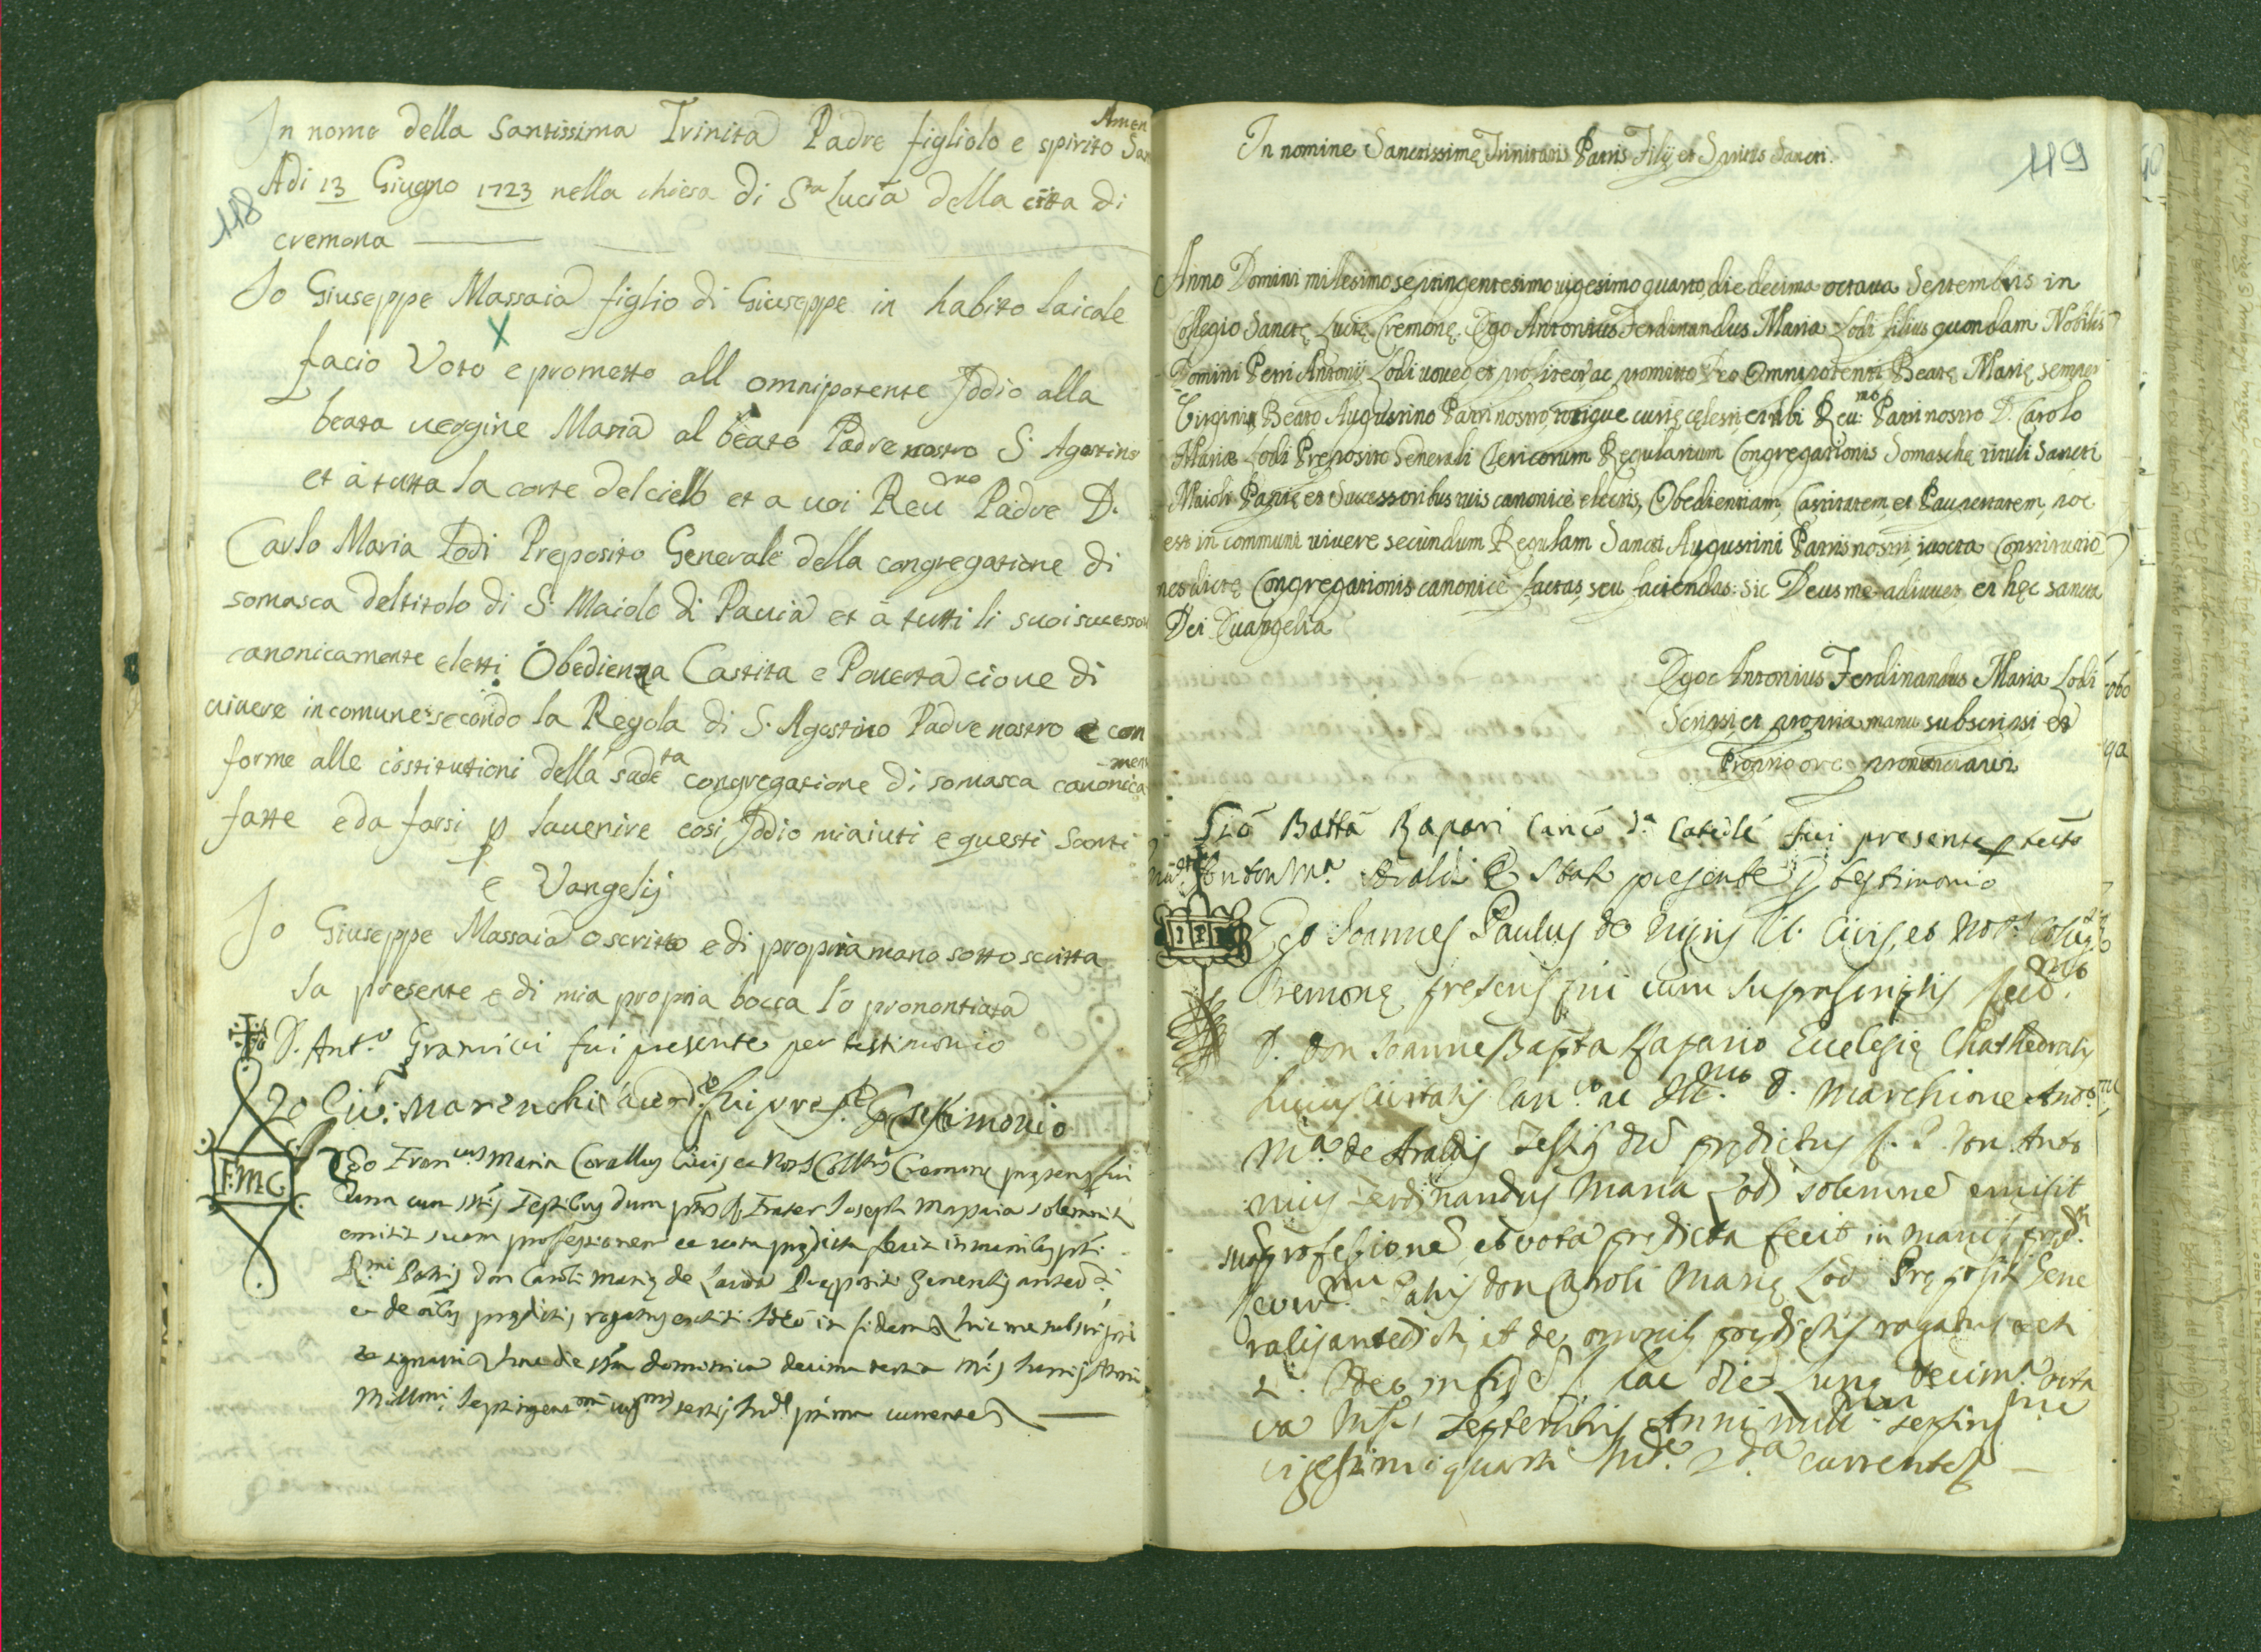 118
Amen
In nome della Santissima Trinità Padre figliolo e spirito San
Adi 13 Giugno 1723 nella chiesa di Sta Lucia della citta di
cremona
Io Giuseppe Massaia figlio di Giuseppe in habito laicale
X
facio Voto e prometto all omnipotente Iddio alla
beata uergine Maria al beato Padre nostro S. Agostino
et à tutta la corte del cielo et a uoi Reumo Padre D.
Carlo Maria Lodi Preposito Generale della congregatione di
somasca del titolo di S. Maiolo di Pauia et à tutti li suoi sucessori
canonicamente eletti Obedienza Castita e Pouerta cioue di
uiuere in comune secondo la Regola di S. Agostino Padre nostro e con
forme alle costitutioni della sudeta congregatione di somasca canonica
ment
fatte e da farsi p lauenire cosi Iddio miaiuti e questi Santi
e Vangelij
Io Giuseppe Massaia o scritto e di propria mano sotto scritta
la presente e di mia propria bocca lo pronontiata
D. Ant.o fui presente per testimonio
Io Gio: fui pres.te p testimonio
F.M.C.
Ego Fran.cus Maria Corallus Civis et Not.s Coll.s Cremonę pręsens fui
una cum testibus dum Frater Joseph Massaia
emisit suam professionem et vota prędicta fecit in manibus
R.mi Patris Don Caroli Marię de Prępositi Generalis
et de prędictis rogatus Ideo in fidem hic me subscripsi
et signavi hac die dominica decima tertia Junij Anni
Mill.mi septingent.mi vig.mi tertij Ind.e prima currente
119
In nomine Sanctissimę Trinitatis Patris Filij et Spiritus Sancti.
Anno Domini milesimo septingentesimo uigesimo quarto, die decima octaua Septembris in
Collegio Sanctę Lucię Cremonę. Ego Antonius Ferdinandus Maria Lodi filius quondam Nobilis
Domini Petri Antonij Lodi uoueo et profiteor ac promitto Deo Omnipotenti Beatę Marię semper
Virgini, Beato Augustino Patri nostro, totique curię cęlesti, et tibi Reu:mo Patri nostro D. Carolo
Mariæ Lodi Preposito Generali Clericorum Regularium Congregationis Somaschę tituli Sancti
Maioli Papię et Sucessoribus tuis canonicè electis, Obedientiam, Castitatem, et Paupertatem, hoc
est in communi uiuere secundum Regulam Sancti Augustini Patris nostri, iuxta Constitutio
nes dictę Congregationis canonicè factas, seu faciendas: sic Deus me adiuuet et hęc sancta
Dei Euangelia
Ego Antonius Ferdinandus Maria Lodi
Scripsi, et propria manu subscripsi et
Proprio ore pronuntiaui
Giõ Battã Rapari fui presente p
Anton M.a Araldi fui presente p testimonio
Ego Joannes Paulus de Civis, et Not.s
Cremonę presens fui cum suprascriptis
D. Don Joanne Bapta Rapario Ecclesię Chathedralis
huius Civitatis Can.co ac D. Marchione Ant.o
M.a de Araldis Testis dum prędictus Don Anto
nius Ferdinandus Maria Lodi solemne emisit
professione, et vota predicta fecit in manis
Patris Don Caroli Marię Lodi Prępositi Gene
ralis antedicti, et de omnis prędictis rogatus
Ideo in fide hac die Lunę decima octa
va Septembris Anni mill.mi septing
vigesimi quarti Ind.e 2.da currente